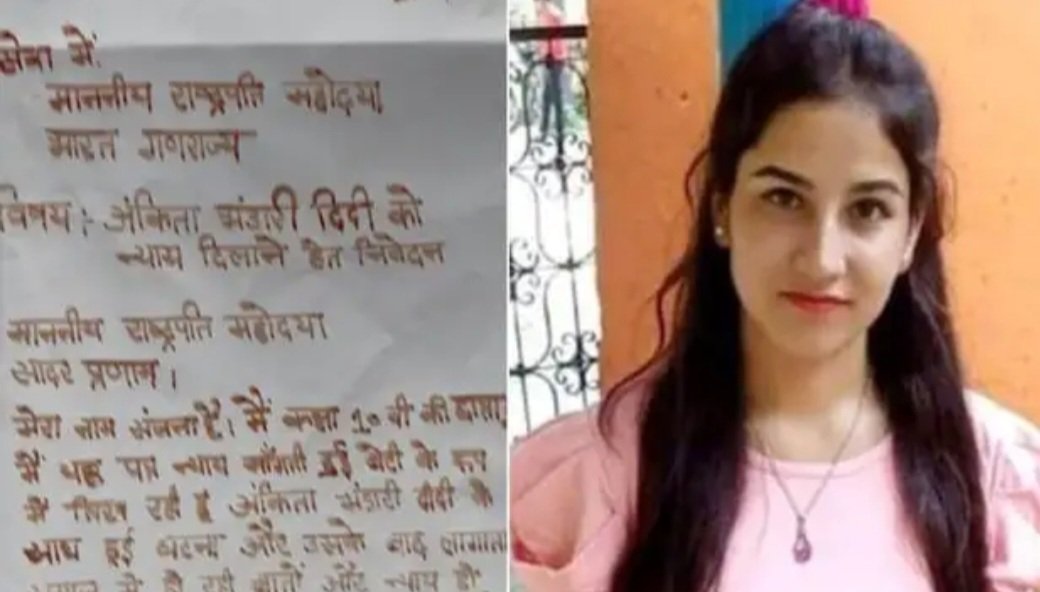 सेवा में:
माननीय राष्ट्रपति महोदया,
भारत गणराज्य
विषय:- अंकिता भंडारी दिदी को
न्याय दिलाने हेत निवेदन
माननीय राष्ट्रपति महोदया
सादर प्रणाम।
मेरा नाम संजना है। मैं कक्षा 10 वी की छात्रा,
मैं यह पत्र न्याय माँगती हुई बेटी के रूप
में लिख रही हूं अंकिता भंडारी दीदी के
साथ हुई घटना और उसके बाद लागातार
में हो रही बातों और न्याय